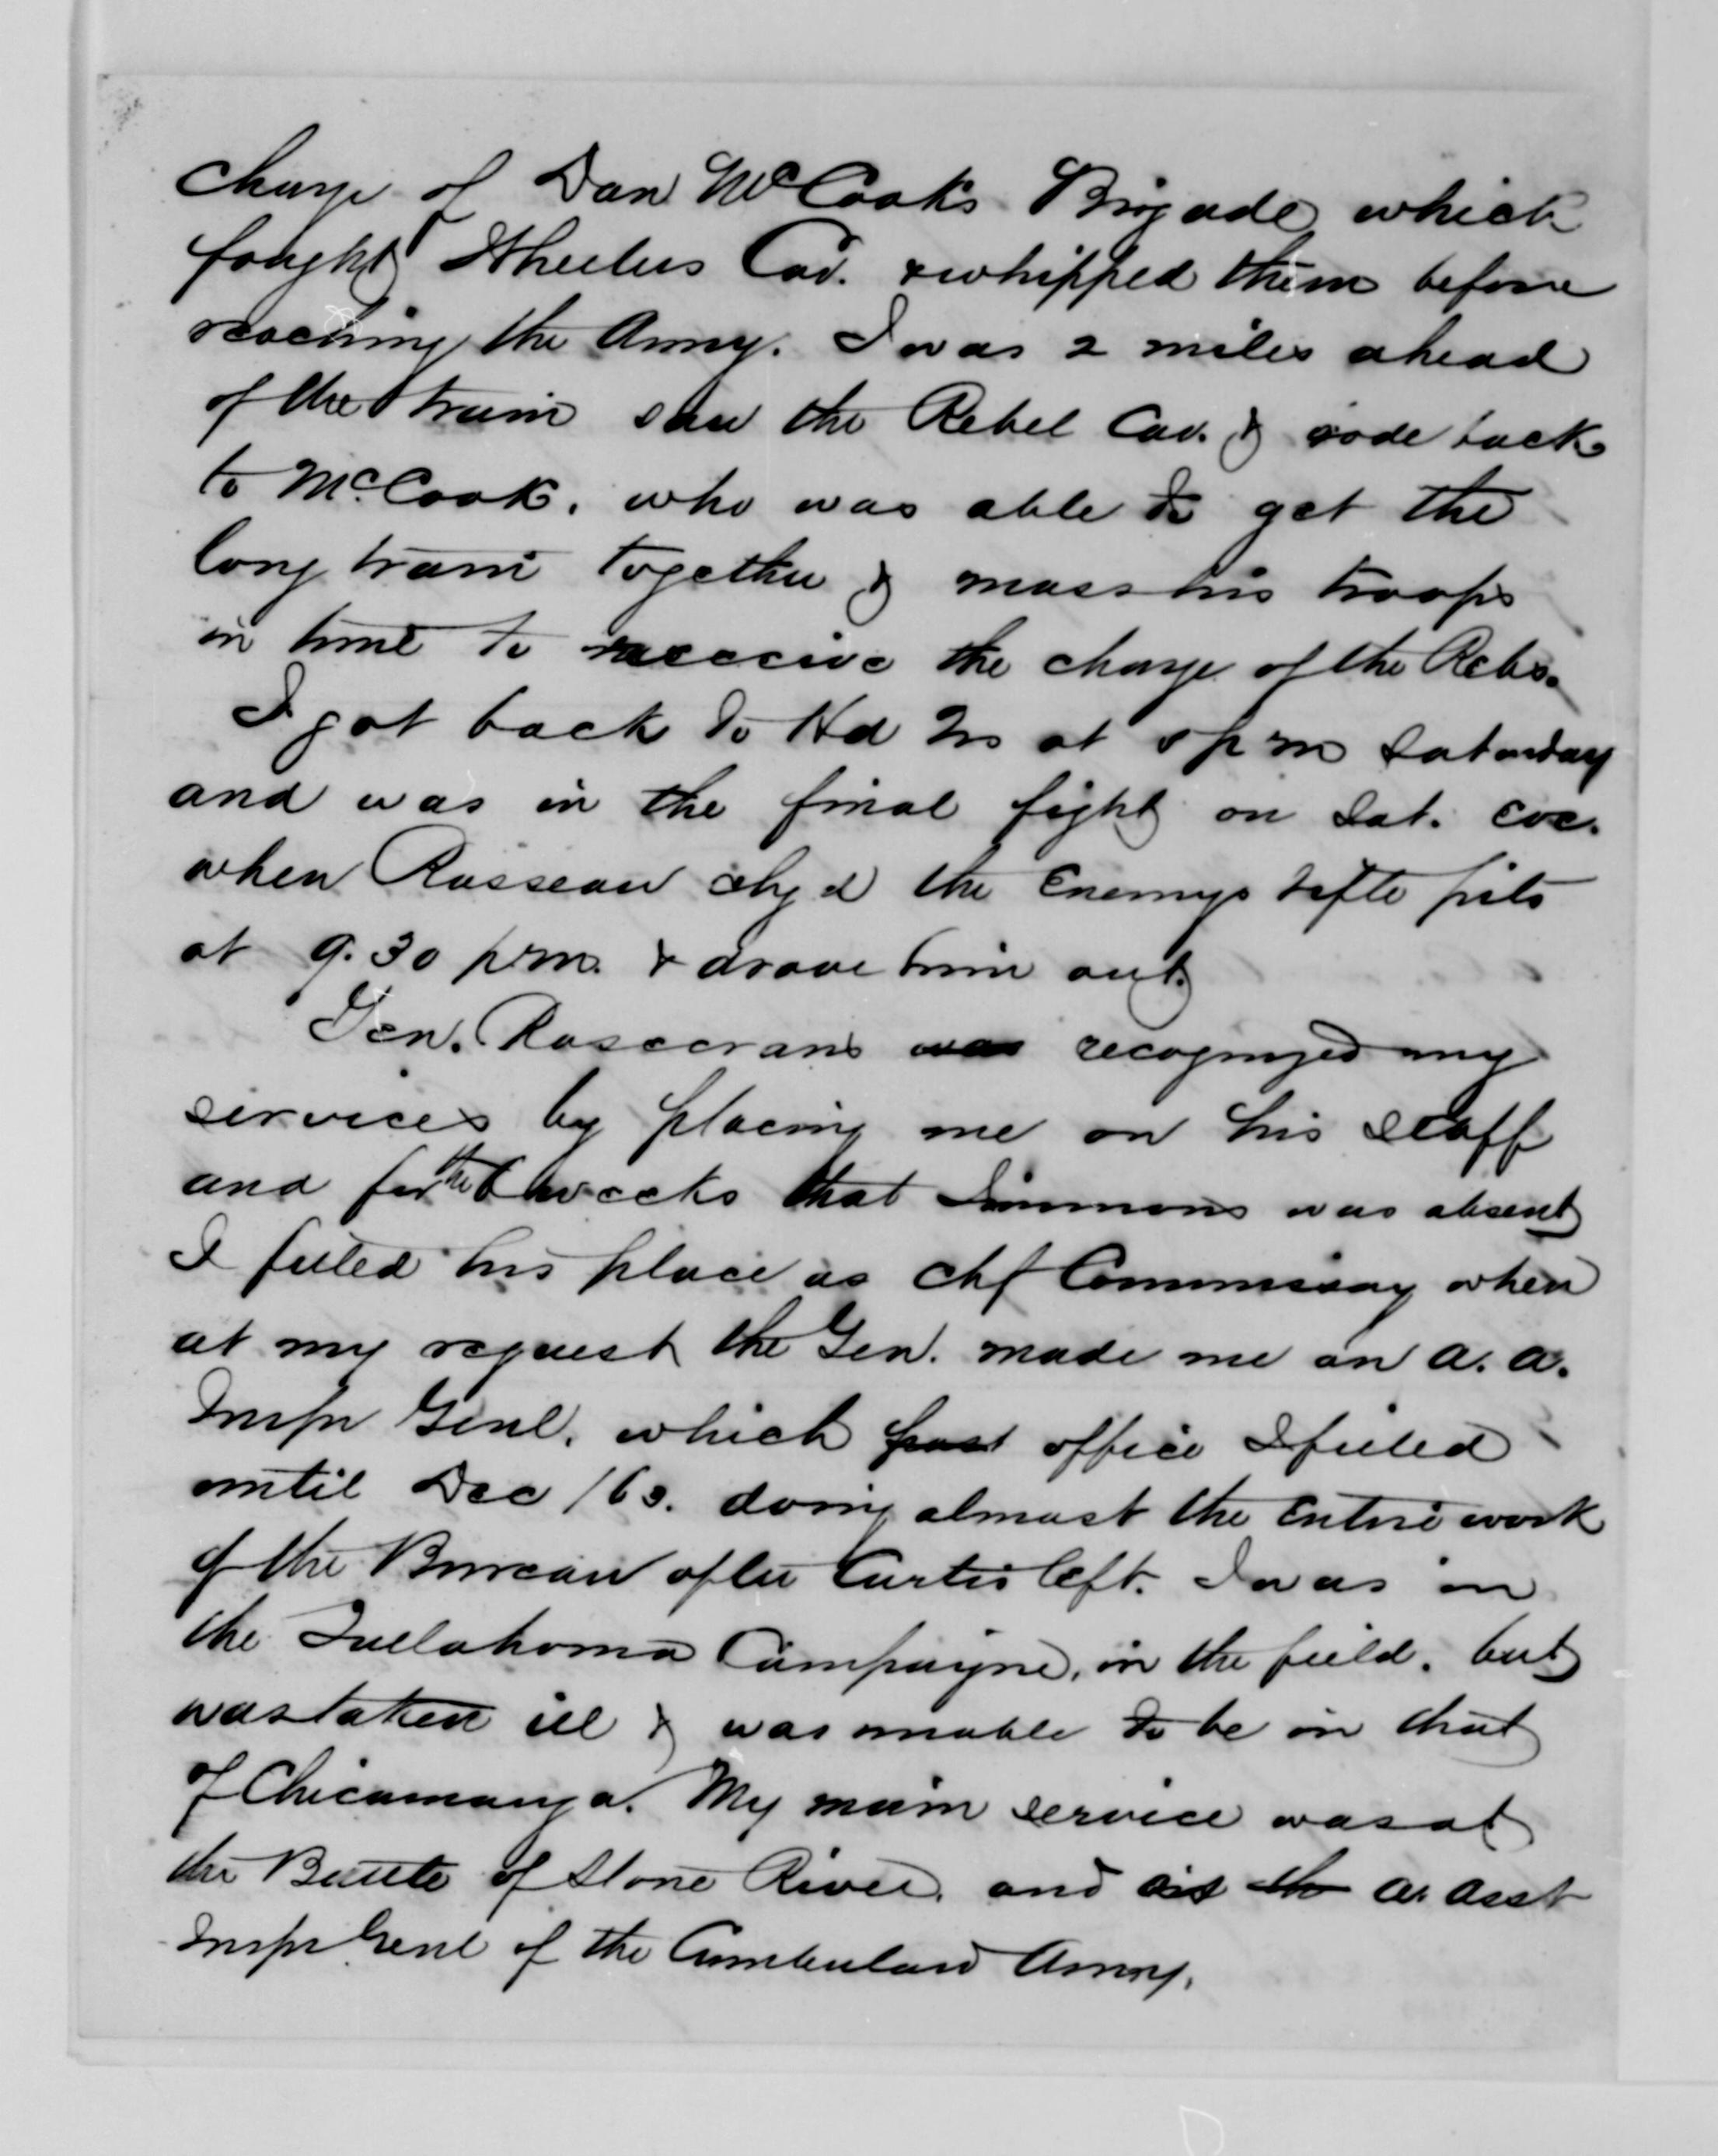 charge of Dan McCook's Brigade which
fought Wheelers Cav. & whipped them before
reaching the Army. I was 2 miles ahead
of the train saw the Rebel Cav. & rode back
to McCook. who was able to get the
long train together & mass his troops
in time to receive the charge of the Rebs.
I got back to Hd Qrs at 5 p m Saturday
and was in the final fight on Sat. eve.
when Rosseau chg'd the Enemys rifle pits
at 9.30 p.m. & drove him out.
Gen. Rosecrans was recognized my
services by placing me on his staff
and for the 6 weeks that Simmons was absent
I filled his place as Chf Commissary when
at my request the Gen. made me an A. A.
Insp Genl. which post office I filled
until Dec /63. doing almost the entire work
of the Bureau after Curtis left. I was in
the Tullahoma Campaigne, in the field. but
was taken ill & was unable to be in that
of Chicamauga. My main service was at
the Battle of Stone River. and as the as Asst
Insp Genl of the Cumberland Army.